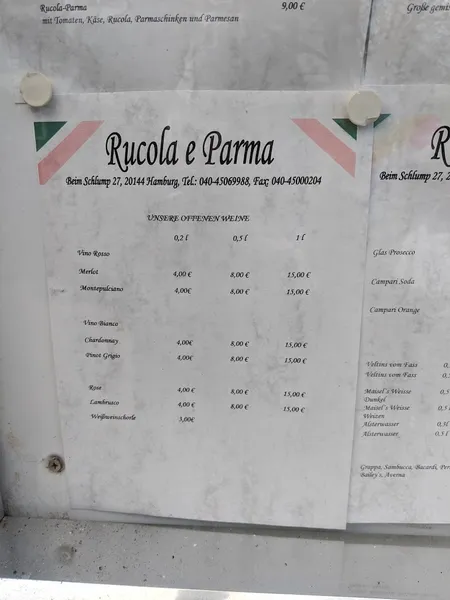 Rucola-Parma 9,00 €
mit Tomaten, Käse, Rucola, Parmaschinken und Parmesan
Große gemis
Rucola e Parma
Beim Schlump 27, 20144 Hamburg, Tel.: 040-45069988, Fax: 040-45000204
UNSERE OFFENEN WEINE
0,2 l 0,5 l 1 l
Vino Rosso
Merlot 4,00 € 8,00 € 15,00 €
Montepulciano 4,00€ 8,00 € 15,00 €
Vino Bianco
Chardonnay 4,00€ 8,00 € 15,00 €
Pinot Grigio 4,00€ 8,00 € 15,00 €
Rose 4,00 € 8,00 € 15,00 €
Lambrusco 4,00 € 8,00 € 15,00 €
Weißweinschorle 3,00€
R
Beim Schlump 27, 2
Glas Prosecco
Campari Soda
Campari Orange
Veltins vom Fass 0,
Veltins vom Fass 0,
Maisel´s Weisse 0,5
Dunkel
Maisel´s Weisse 0,5 l
Weizen
Alsterwasser 0,3l
Alsterwasser 0,5 l
Grappa, Sambucca, Bacardi, Per
Bailey´s, Averna